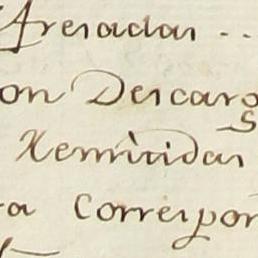 Fresadas ..
on Descarg
s
Remitidas
ra Correspon